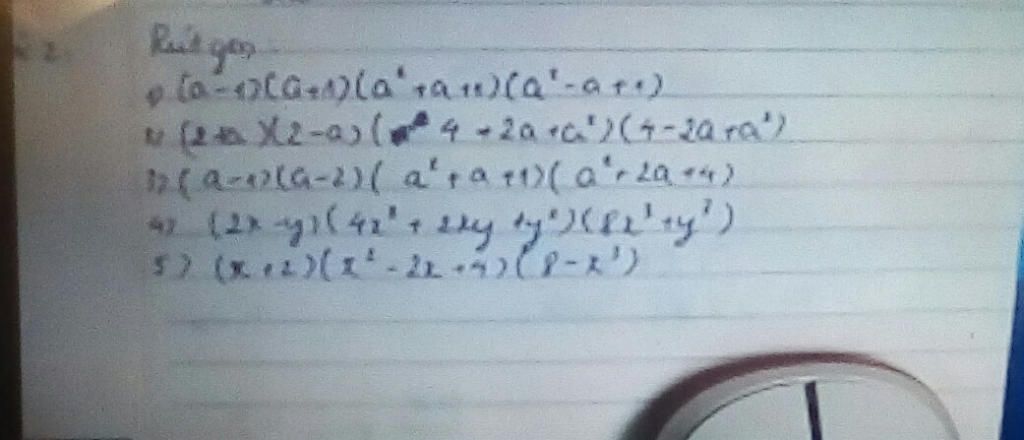 Rút gọn
1) (a-1)(a+1)(a²+a+1)(a²-a+1)
2) (2+a)(2-a)(4+2a+a²)(4-2a+a²)
3) (a-1)(a-2)(a²+a+1)(a²+2a+4)
4) (2x-y)(4x²+2xy+y²)(8x³+y³)
5) (x+2)(x²-2x+4)(8-x³)